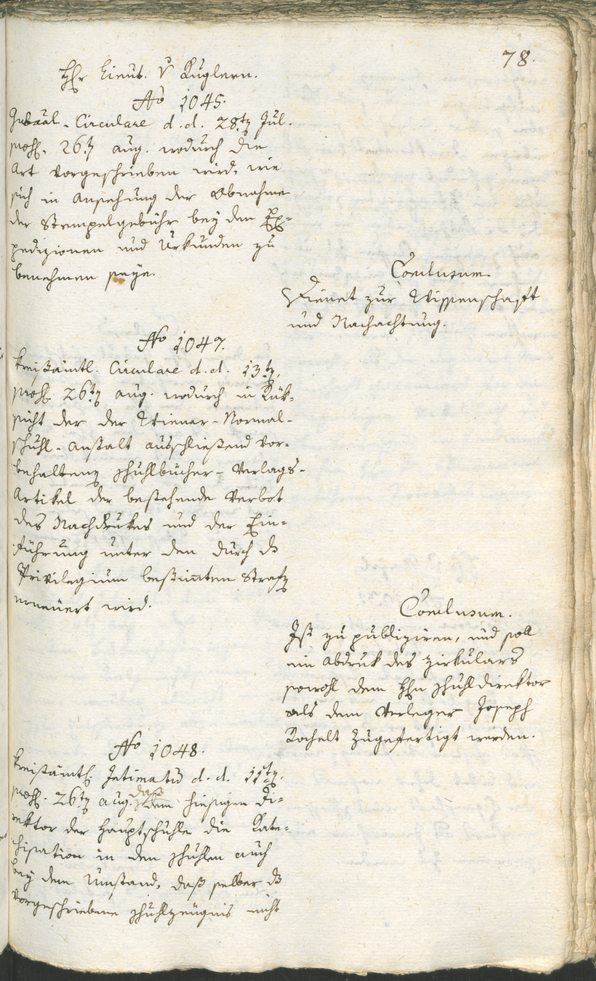 78.
H. Lieut. v Kuglern.
No 1045.
Gubāl-Circulare d. d. 28ten Jul.
praes. 26ten aug. wodurch die
Art vorgeschrieben wird, wie
sich in Ansehung der Abnahme
der Stempelgebühr bey den Ex-
pedizionen und Urkunden zu
benehmen seye.
Conclusum.
Dienet zur Wissenschaft
und Nachachtung.
No 1047.
Kreisämtl. Circulare d. d. 13ten
praes. 26ten aug. wodurch in Rük-
sicht der der Wiener-Normal-
schuhl-Anstalt ausschließend vor-
behaltenen schuhlbücher-Verlags-
Artikel der bestehende Verbot
des Nachdrukes und der Ein-
führung unter den durch ds
Privilegium bestimten Strafen
erneuert wird.
Conclusum.
Ist zu publiziren, und soll
ein Abdruk des zirkulars
sowohl dem Hn schuhldirektor
als dem Verleger Joseph
zugefertigt werden.
No 1048.
Kreisämtl. Intimatū d. d. 11ten
praes. 26ten aug. daß dem hiesigen Di-
rektor der Hauptschuhle die Kate-
chisation in den schuhlen auch
bey dem Umstand, daß selber ds
vorgeschriebene schuhlzeugnis nicht